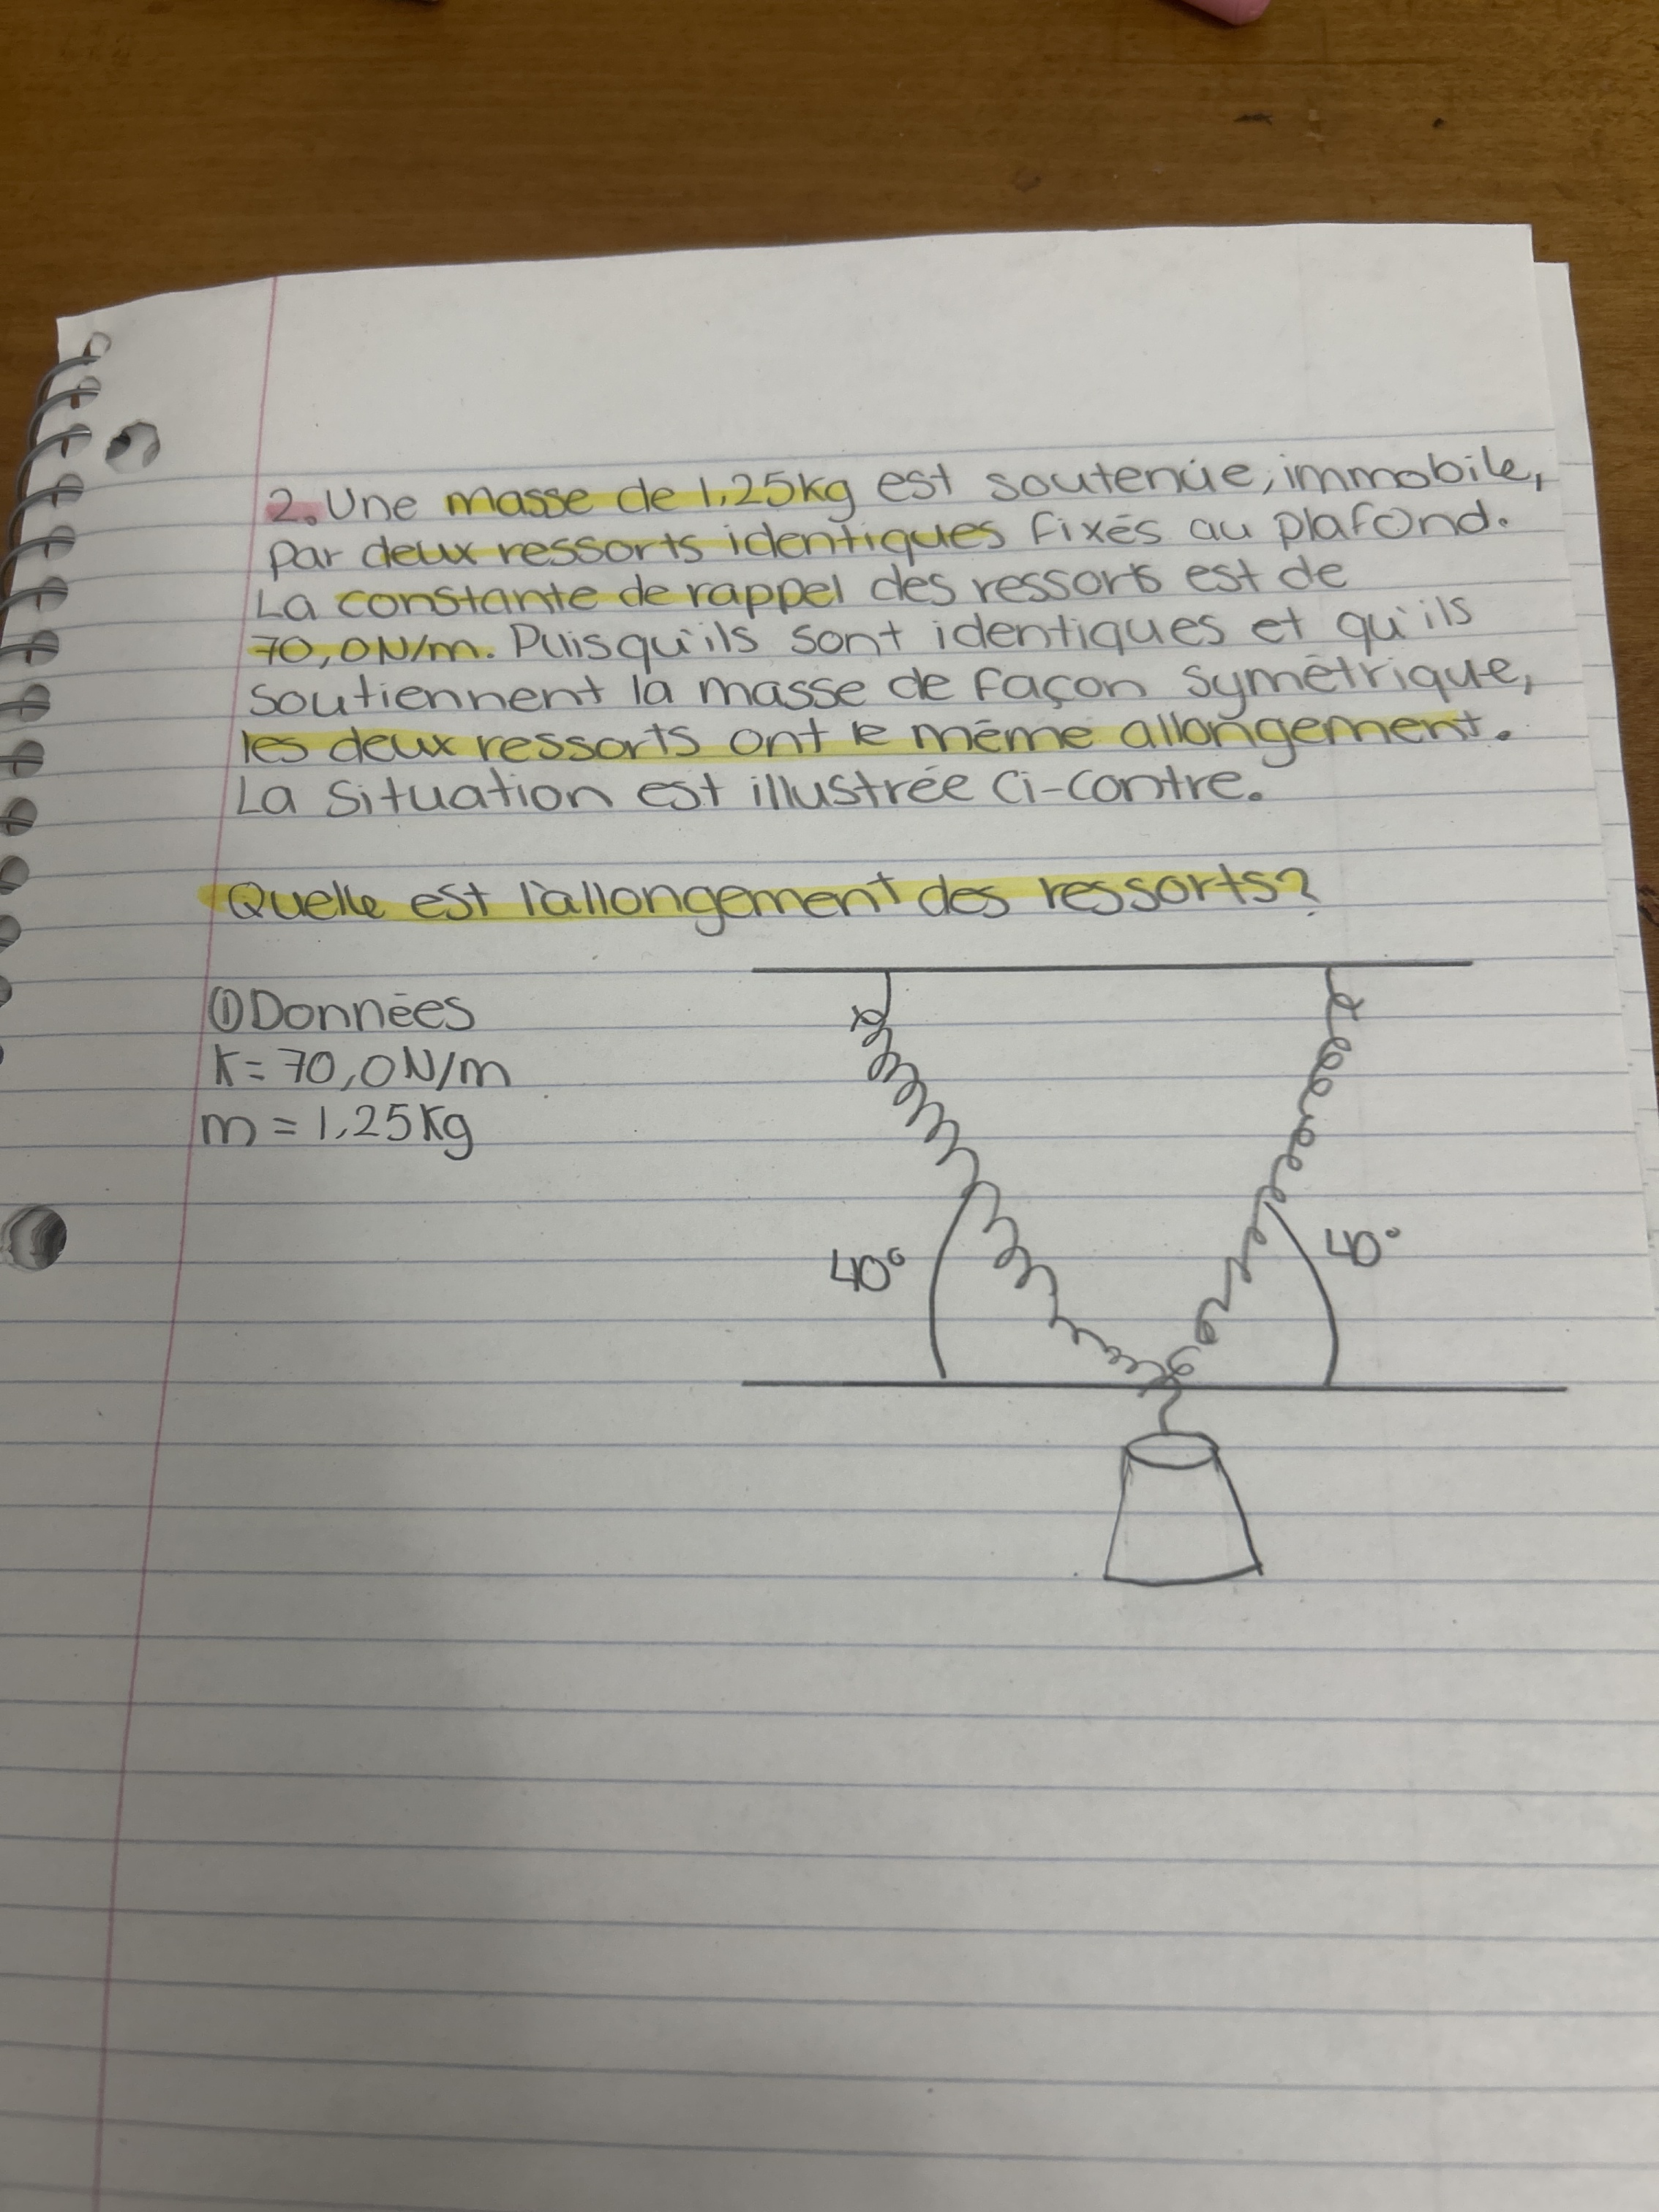 2. Une masse de 1,25kg est soutenue, immobile,
par deux ressorts identiques fixés au plafond.
La constante de rappel des ressorts est de
70,0N/m. Puisqu'ils sont identiques et qu'ils
soutiennent la masse de façon symétrique,
les deux ressorts ont le même allongement.
La situation est illustrée ci-contre.
Quelle est l'allongement des ressorts?
① Données
K = 70,0N/m
m = 1,25Kg
40°
40°